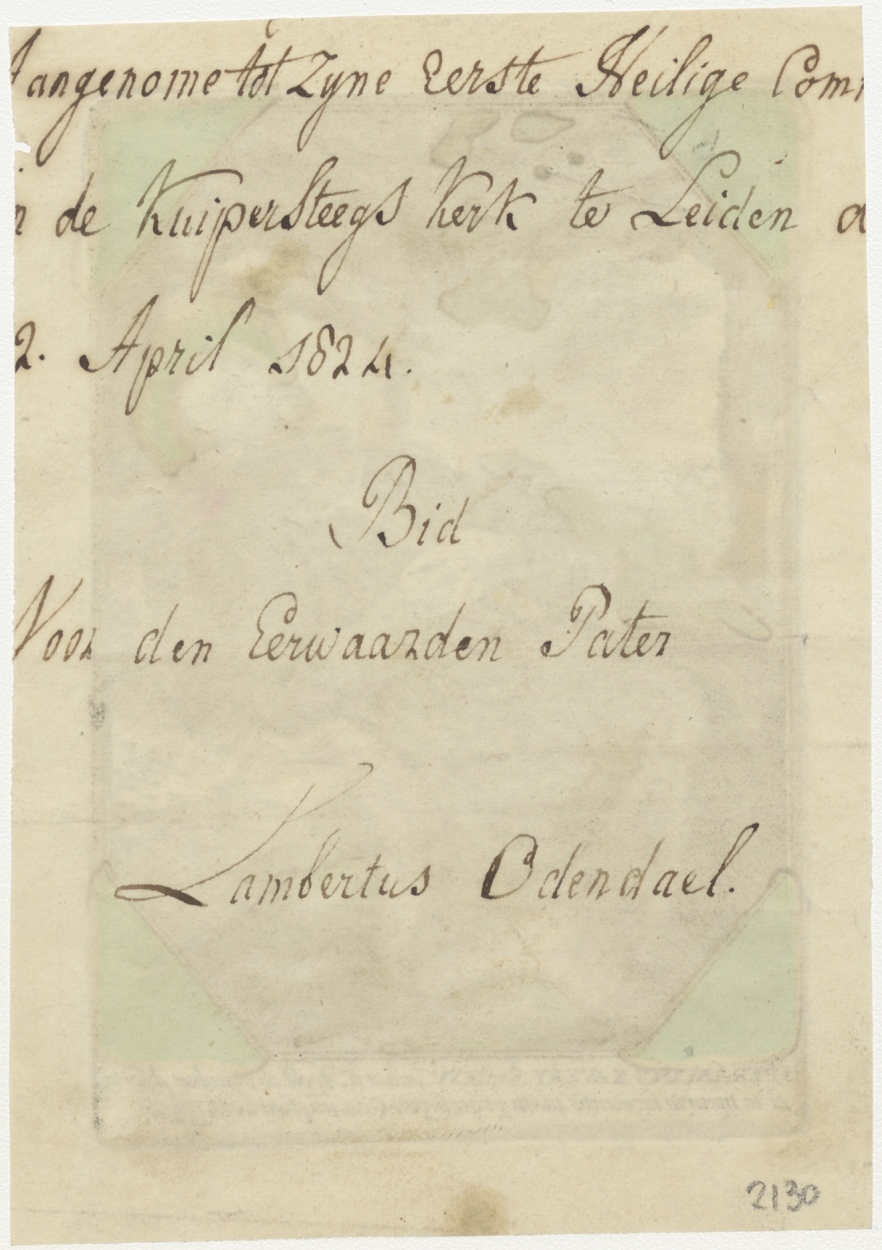 Aangenome tot Zyne Eerste Heilige Comm
in de Kuipersteegs Kerk te Leiden d
2. April 1824.
Bid
Voor den Eerwaarden Pater
Lambertus Odendael.
2130